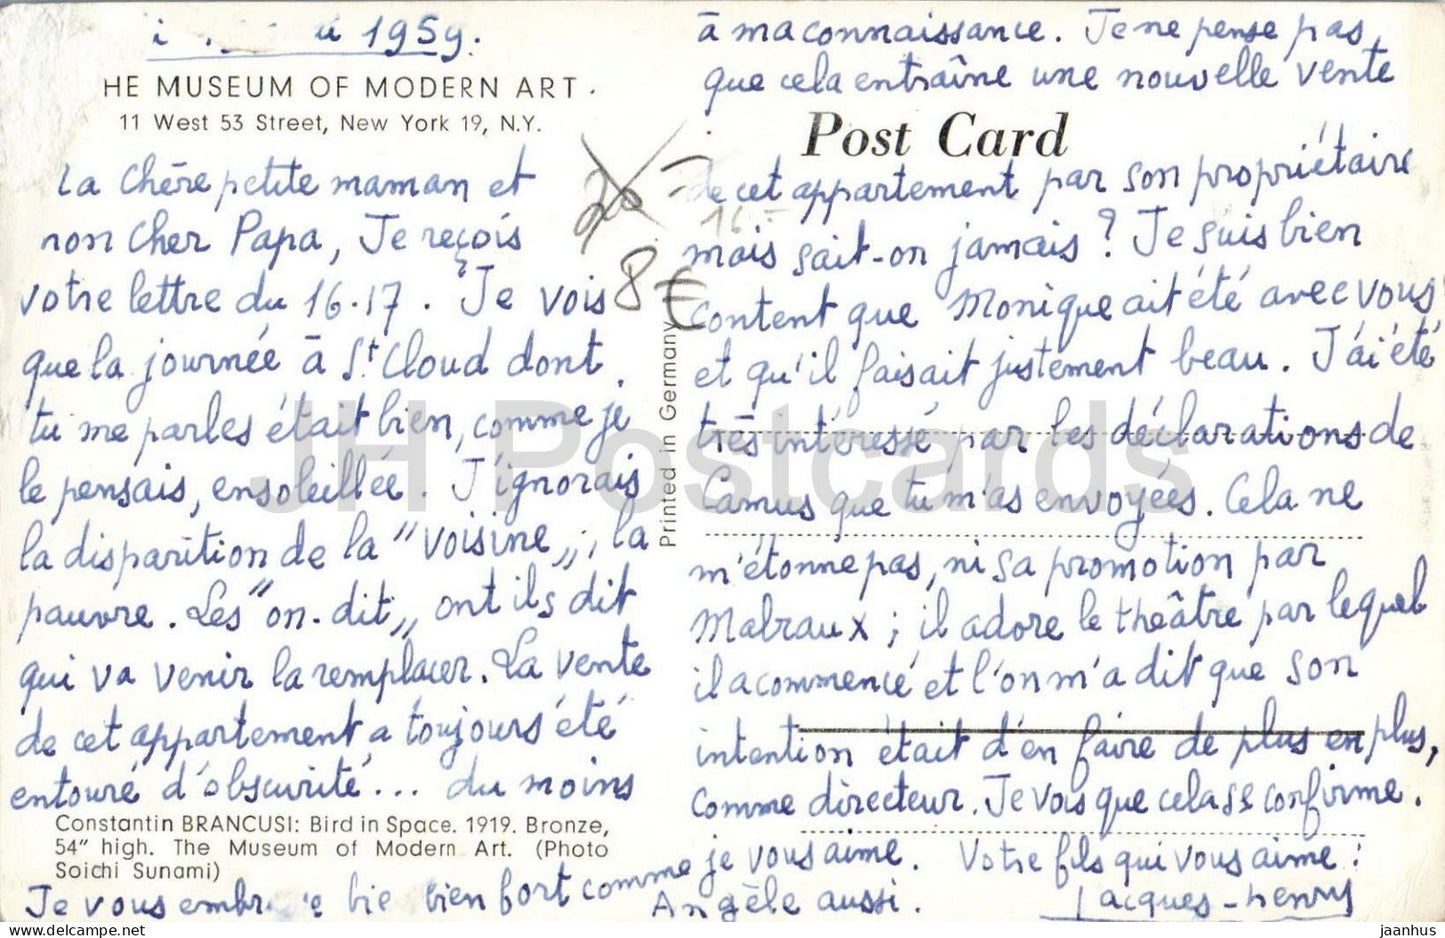 1959.
HE MUSEUM OF MODERN ART.
11 West 53 Street, New York 19, N.Y.
La Chère petite maman et
non Cher Papa, Je reçois
votre lettre du 16-17. Je vois
que la journée à St Cloud dont
tu me parles était bien, comme je
le pensais, ensoleillée. J'ignorais
la disparition de la "voisine", la
pauvre. Les "on-dit" ont ils dit
qui va venir la remplacer. La vente
de cet appartement a toujours été
entouré d'obscurité... du moins
Constantin BRANCUSI: Bird in Space. 1919. Bronze,
54" high. The Museum of Modern Art. (Photo
Soichi Sunami)
20
16.-
8 €
Printed in Germany
à ma connaissance. Je ne pense pas
que cela entraîne une nouvelle vente
Post Card
de cet appartement par son propriétaire
mais sait-on jamais ? Je suis bien
content que Monique ait été avec vous
et qu'il faisait justement beau. J'ai été
très intéressé par les déclarations de
Camus que tu m'as envoyées. Cela ne
m'étonne pas, ni sa promotion par
Malraux ; il adore le théâtre par lequel
il a commencé et l'on m'a dit que son
intention était d'en faire de plus en plus,
comme directeur. Je vois que cela se confirme.
Je vous embr e bie bien fort comme je vous aime. Votre fils qui vous aime :
Angèle aussi. Jacques-Henry
JH Postcards
jaanhus